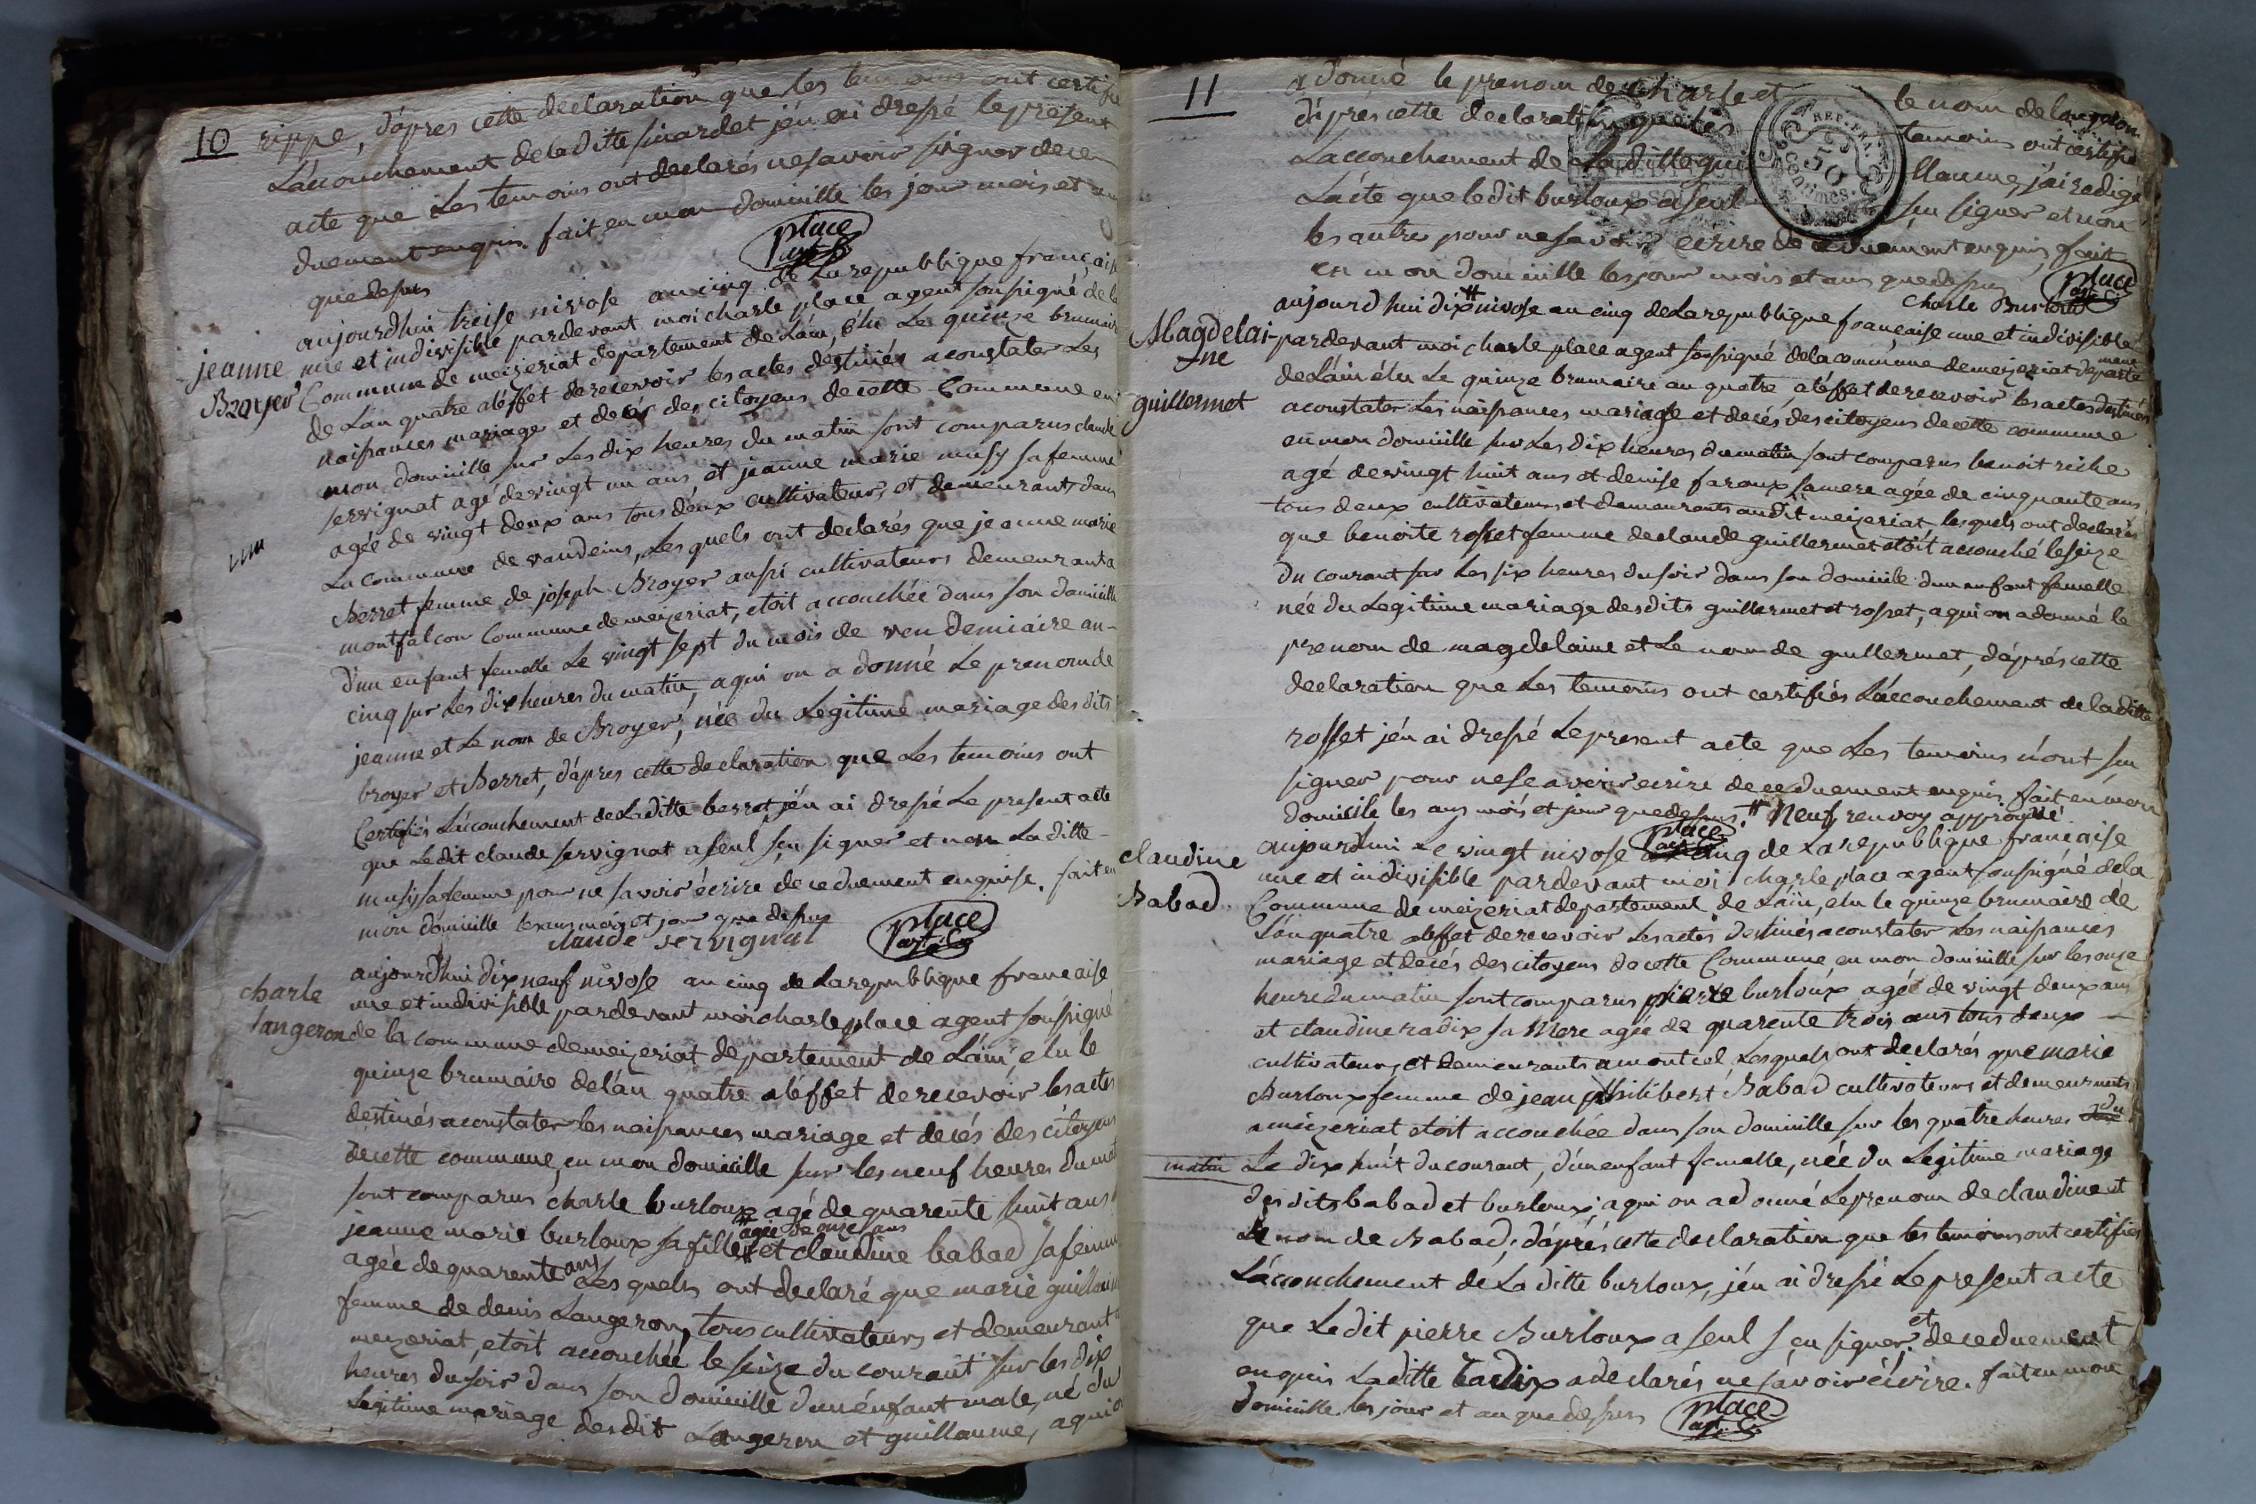 10
rippe, d'apres cette declaration que les temoins ont certifié
L'accouchement de la ditte sicardet j'en ai dressé le present
acte que Les temoins ont declarés ne savoir signer de ce
duement enquis. fait en mon domicille les jour mois et an
que dessus
place agt. C.
jeanne Broyer
aujourdhui treise nivose an cinq de La republique française
une et indivisible pardevant moi charle place agent soussigné de la
Commune de meizeriat departement de L'ain, élu Le quinze brumaire
de L'an quatre a l'éffet de recevoir les actes destinés a constater Les
naissances mariages et decés des citoyens de cette Commune en
mon domicille, sur Les dix heures du matin sont comparus claude
servignat agé de vingt un ans, et jeanne marie musy sa femme
agée de vingt deux ans tous deux cultivateurs et demeurants dans
La commune de vandeins, Les quels ont declarés que jeanne marie
Berret femme de joseph Broyer aussi cultivateurs demeurant a
montfalcon Commune de meizeriat, etoit accouchée dans son domicille
d'un enfant femelle Le vingt sept du mois de vendemiaire an-
cinq sur Les dix heures du matin, a qui on a donné Le prenom de
jeanne et Le nom de Broyer, née du Legitime mariage des dits
broyer et Berret, d'apres cette declaration que Les temoins ont
Certifiés L'accouchement de La ditte berret, j'en ai dressé Le present acte
que Le dit claude servignat a seul sçu signer et non La ditte -
musy sa femme pour ne savoir écrire, de ce duement enquise. fait en
mon domicille les ans mois et jour que dessus
claude servignat
place agt. C.
charle langeron
aujourdhui dix neuf nivose an cinq de La republique française
une et indivisible pardevant moi charle place agent soussigné
de la commune de meizeriat departement de L'ain, elu le
quinze brumaire de l'an quatre a l'éffet de recevoir les actes
destinés a constater les naissances mariage et decés des citoyens
de cette commune, en mon domicille sur les neuf heures du mat
sont comparus charle burloux agé de quarente huit ans
jeanne marie burloux sa fille # et claudine babad sa femme
# agée de onze ans
agée de quarente ans Les quels ont declaré que marie guillaume
femme de denis Langeron, tous cultivateurs et demeurant a
meizeriat, etoit accouchée le seize du courant sur les dix
heures du soir dans son domicille d'un énfant male, né du
Legitime mariage desdit Langeron et guillaume, a qui on
11
a donné le prenom de charle et le nom de langeron
d'apres cette declaration que les temoins ont certifié
L'accouchement de La ditte guillaume, j'ai redigé
L'acte que le dit burloux a seul sçu signer et non
les autres pour ne savoir ecrire de ce duement enquis, fait
en mon domicille les jour mois et ans que dessus
charle Burloux
place agt. C.
REP. FRA. 50 Centimes.
Magdelaine guillermet
aujourdhui dix # nivose an cinq de La republique française une et indivisible
pardevant moi charle place agent soussigné de la commune de meizeriat departement
de L'ain élu Le quinze brumaire an quatre, a l'éffet de recevoir les actes destinés
a constater Les naissances mariage et decés, des citoyens de cette commune
en mon domicille sur Les dix heures du matin sont comparus benoit riche
agé de vingt huit ans et denise faroux sa mere agée de cinquante ans
tous deux cultivateurs et demeurants au dit meizeriat, les quels ont declarés
que benoite rosset femme de claude guillermet etoit accouché le seize
du courant sur Les six heures du soir dans son domicile d'un enfant femelle
née du Legitime mariage desdits guillermet et rosset, a qui on a donné le
prenom de magdelaine et Le nom de guillermet, d'aprés cette
declaration que Les temoins ont certifiés L'accouchement de la ditte
rosset j'en ai dressé Le present acte que Les temoins n'ont sçu
signer pour ne seavoir ecrire de ce duement enquis. fait en mon
domicile les ans mois et jour que dessus. # Neuf renvoy approuvé
place agt. C.
claudine Babad
aujourdhui Le vingt nivose an cinq de La republique française
une et indivisible pardevant moi charle place agent soussigné de la
Commune de meizeriat departement de L'ain, elu le quinze brumaire de
L'an quatre a l'effet de recevoir Les actes destinés a constater Les naissances
mariage et decés des citoyens de cette Commune en mon domicille sur les onze
heure du matin sont comparus pierre burloux agée de vingt deux ans
et claudine radix sa Mere agée de quarente trois ans tous deux -
cultivateurs et demeurants a montcel Lesquels ont declarés que marie
Burloux femme de jean philibert Babad cultivateurs et demeurants
a meizeriat etoit accouchée dans son domicille sur les quatre heures du
matin Le dix huit du courant, d'un enfant femelle, née du Legitime mariage
desdits babad et burloux, a qui on a donné Le prenom de claudine et
Le nom de Babad; d'aprés cette declaration que les temoins ont certifiés
L'accouchement de La ditte burloux, j'en ai dressé Le present acte
que Ledit pierre Burloux a seul sçu signer et de ce duement
enquis La ditte Radix a declarés ne savoir écrire. fait en mon
domicille les jour et an que dessus
place agt. C.